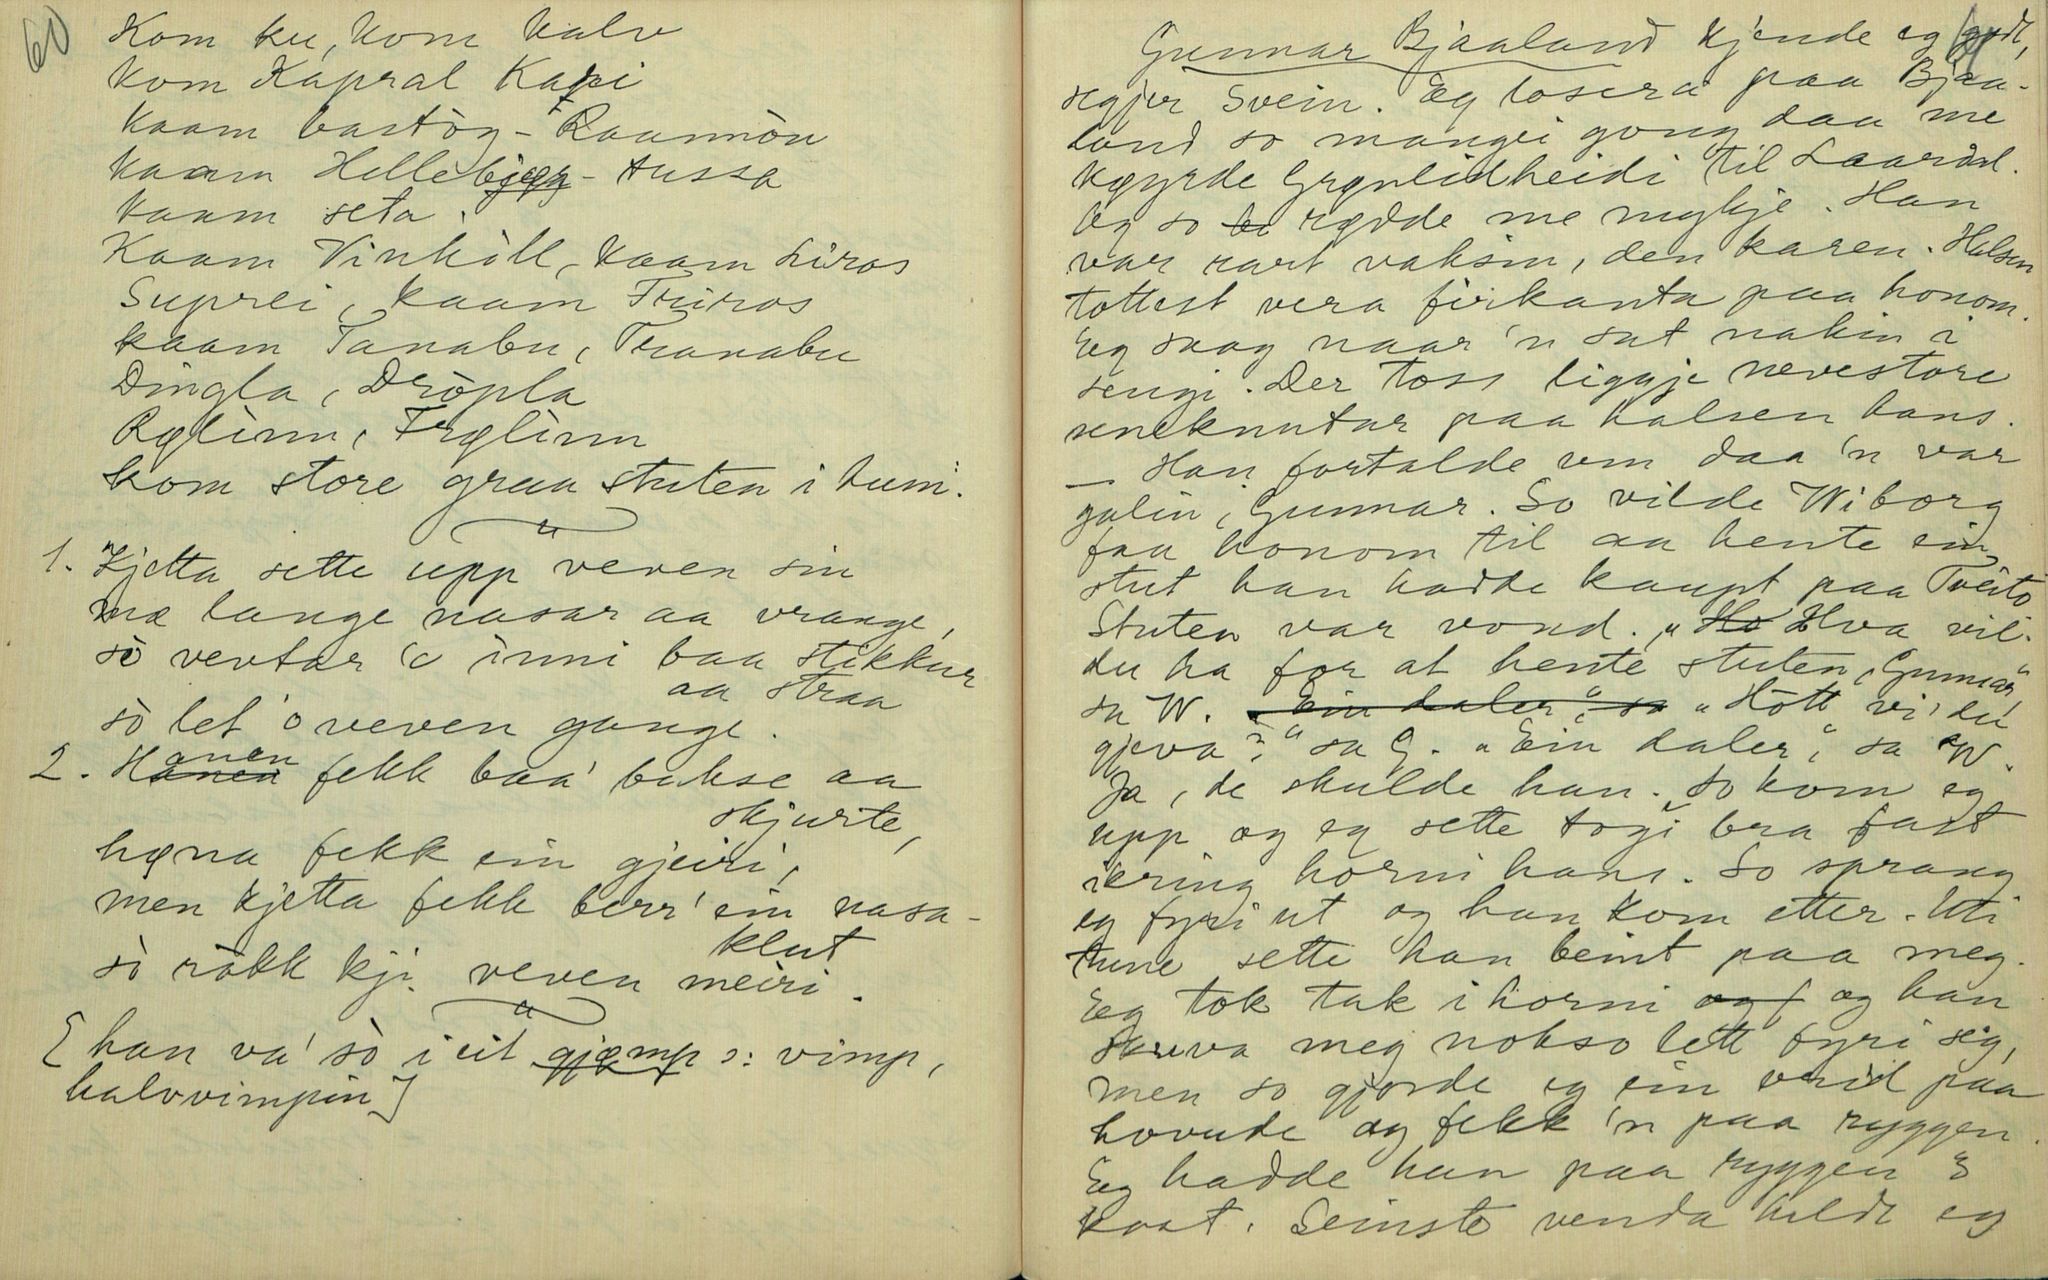 60
Kom ku, kom kalv
kom Kapral Kapi
kaam bastòg - Raunmòn
kaam Hellebjegg - tussa
kaam seta.
Kaam Vinkòll, kaam Liros
Suprei, kaam Friros
kaam Tanabu, Tranabu
Dingla, Dròpla
Rølinn, Frølinn
kom store graa stuten i humi.
1. "Kjetta sette upp veven sin
mæ lange nasar aa vrange,
sò ventar 'o inni baa stikkur
aa straa
sò let 'o veven gange.
2. Hanen fekk baa' bukse aa
skjurte,
høna fekk ein gjeiri,
men kjetta fekk berr' ein nasa-
klut
sò ròkk kji veven meiri.
[han va' sò i eit gjømp ɔ: vimp,
halvvimpin]
61
Gunnar Bjaaland kjende eg godt,
segjer Svein. Eg losera paa Bjaa-
land so mangei gong daa me
køyrde Grønlidheidi til Laardal.
Og so rødde me mykje. Han
var rart vaksin, den karen. Halsen
tottest vera firkanta paa honom.
Eg saag naar 'n sat nakin i
sengi. Der toss liggje nevestore
seneknutar paa halsen hans.
— Han fortalde um daa 'n var
galin, Gunnar. So vilde Wiborg
faa honom til aa hente ein
stut han hadde kaupt paa Tveito
Stuten var vond. "Hva vil
du ha for at hente stuten, Gunnar"
sa W. Ein daler", sa "Hòtt vi' du
gjeva?" sa G. "Ein daler," sa W.
Ja, de skulde han. So kom eg
upp og eg sette togi bra fast
ikring horni hans. So sprang
eg fyri ut og han kom etter. Uti
tune sette han beint paa meg.
Eg tok tak i horni og f og han
skuva meg nokso lett fyri seg,
men so gjorde eg ein vrid paa
hovude og fekk 'n paa ryggen.
Eg hadde han paa ryggen 3
kast. Seinste venda heldt eg